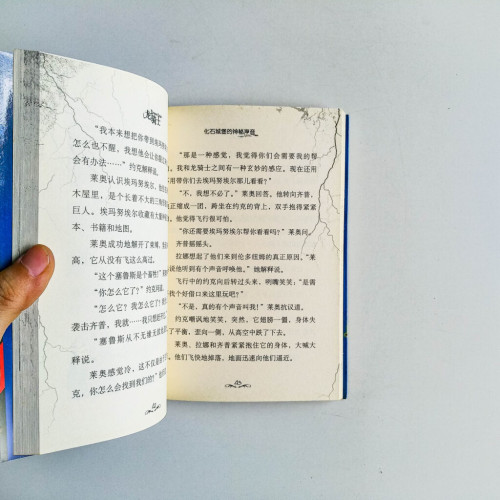 龙骑士
“我本来想把你带到埃玛努
怎么也不醒，我想他会让你
会有办法……”约克解释说。
莱奥认识埃玛努埃尔，
木屋里，是个长着不大的三
巨人。埃玛努埃尔收藏有大
本、书籍和地图。
莱奥成功地解开了束缚，
高。它从没有飞这么高过。
“这个塞鲁斯是个畜牲！”
“你怎么它了？”约克
“怎么？我怎么它了？
袭击齐普，我就……我只想
“塞鲁斯从不无缘无故
释说。
莱奥感觉冷，这不仅是
克，你怎么会找到我们的？”
化石城堡的神秘弹音
“那是一种感觉，我觉得你们会需要我的帮
我和龙骑士之间有一种玄妙的感应。现在还用
用带你们去埃玛努埃尔那儿看看？”
“不，我想不必了。”莱奥回答。他转向齐普，
正缩成一团，跨坐在约克的背上，双手抱得紧紧
。他觉得飞行很可怕。
“你还需要埃玛努埃尔帮你看看吗？”莱奥问。
齐普摇摇头。
拉娜想起了他们来到伦多纽姆的真正原因。“莱
说他听到有个声音呼唤他。”她解释说。
飞行中的约克向后转过头来，咧嘴笑笑：“是偶
找个好借口来这里玩吧？”
“不是，真的有个声音叫我！”莱奥抗议道。
约克嘲讽地笑笑，突然，它翅膀一蜷，身体失
了平衡，歪向一侧，从高空中跌了下去。
莱奥、拉娜和齐普紧紧抱住它的身体，大喊大
，他们飞快地掉落，地面迅速向他们逼近。